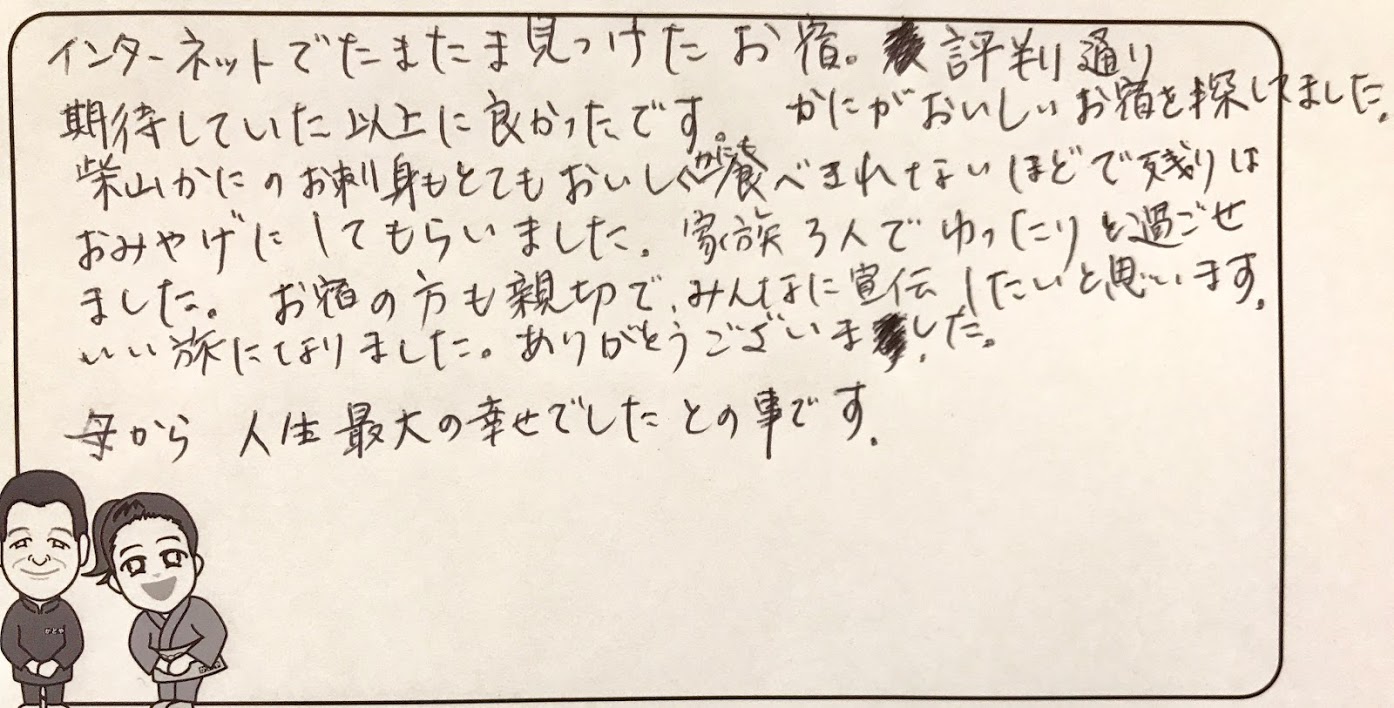 インターネットでたまたま見つけたお宿。評判通り
期待していた以上に良かったです。 かにがおいしいお宿を探してました。
柴山かにのお刺身もとてもおいしくかにも食べきれないほどで残りは
おみやげにしてもらいました。家族3人でゆったりと過ごせ
ました。 お宿の方も親切で、みんなに宣伝したいと思います。
いい旅になりました。ありがとうございました。
母から 人生最大の幸せでしたとの事です。
かどや